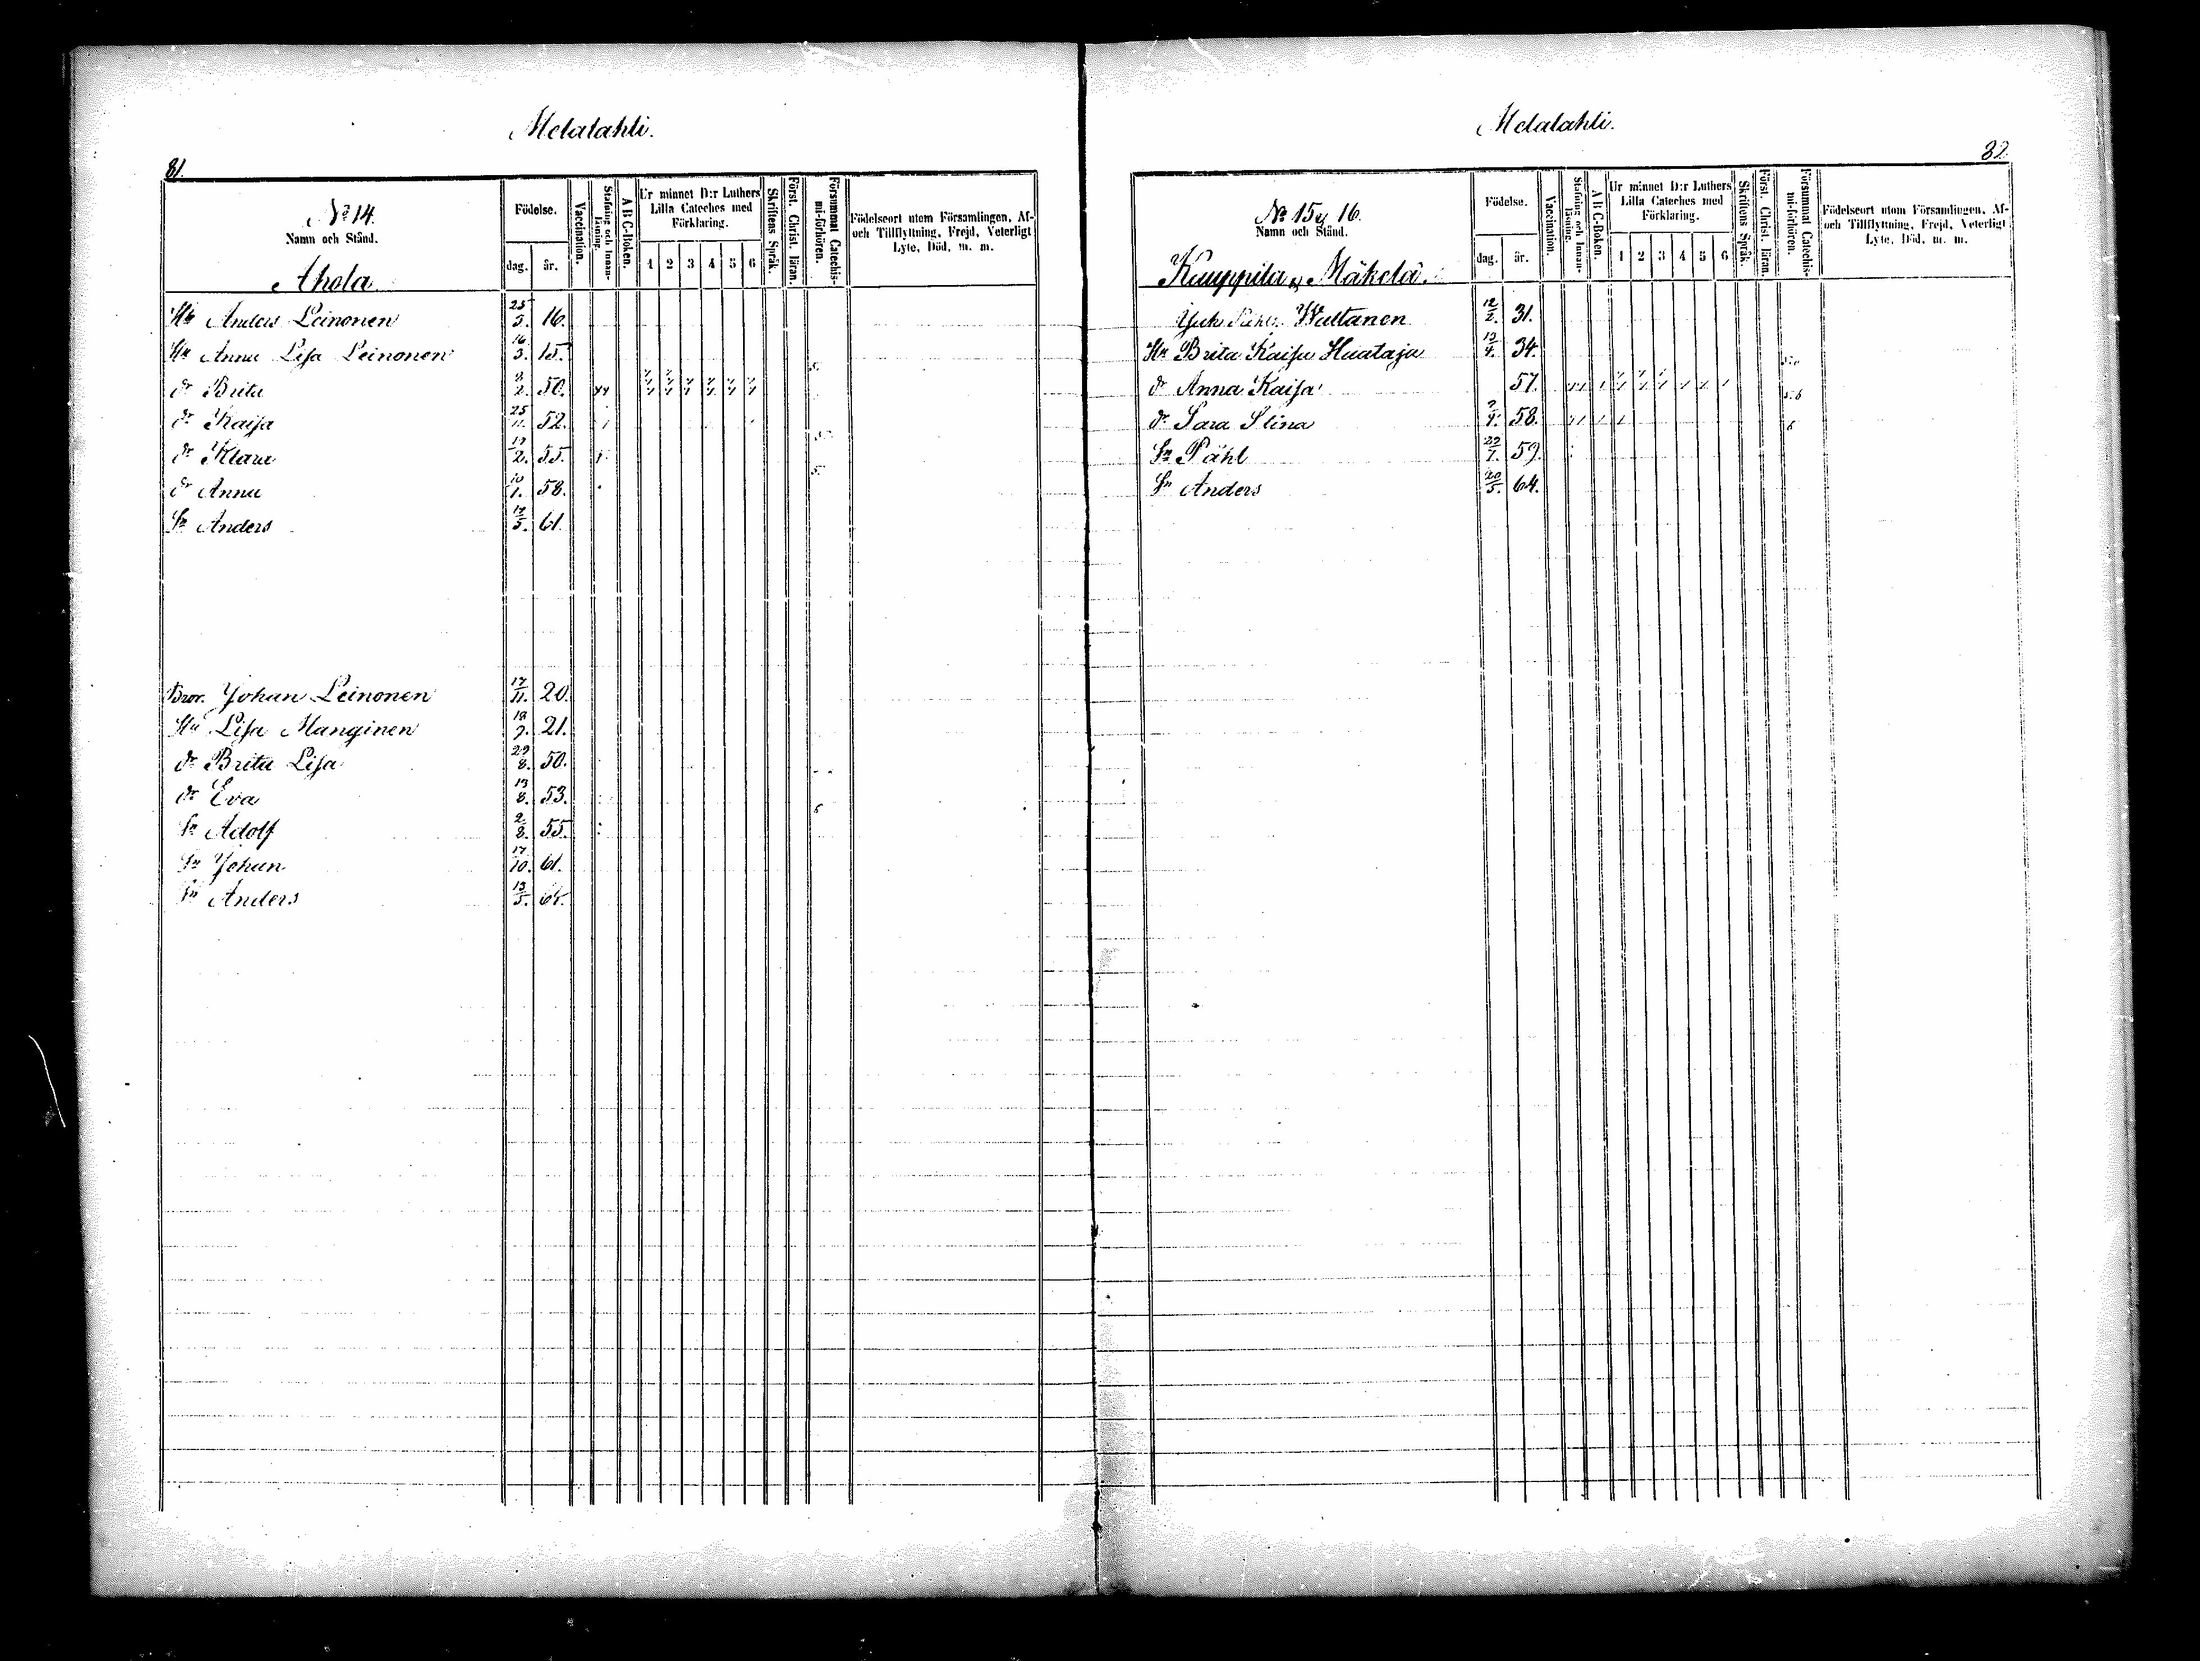 Melalahti.
81.
No 14.
Namn och Stånd.
Ahola
Födelse.
dag. år.
Vaccination.
Stafning och Innan-läsning.
A B C-Boken.
Ur minnet D:r Luthers
Lilla Cateches med
Förklaring.
1 2 3 4 5 6
Skriftens Språk.
Först. Christ. läran.
Försummat Catechis-
mi-förhören.
Födelseort utom Församlingen, Af-
och Tillflyttning, Frejd, Veterligt
Lyte, Död, m. m.
Anders Leinonen 25/5. 16.
Hu Anna Lisa Leinonen 16/3. 15.
dr Brita 2. 50.
dr Kaisa 25/11. 52.
dr Klara 2. 55.
dr Anna 10/1. 58.
Sn Anders 5. 61.
Bror. Johan Leinonen 17/11. 20.
Hu Lisa Manginen 21.
dr Brita Lisa 29/8. 50.
dr Eva 13/8. 53.
Sn Adolf 2/8. 55.
Sn Johan 17/10. 61.
Sn Anders 13/5.
Melalahti.
82.
No 15 & 16.
Namn och Stånd.
Kauppila & Mäkelä.
Födelse.
dag. år.
Vaccination.
Stafning och Innan-läsning.
A B C-Boken.
Ur minnet D:r Luthers
Lilla Cateches med
Förklaring.
1 2 3 4 5 6
Skriftens Språk.
Först. Christ. läran.
Försummat Catechis-
mi-förhören.
Födelseort utom Församlingen, Af-
och Tillflyttning, Frejd, Veterligt
Lyte, Död, m. m.
Wattanen 12/2. 31.
Hu Brita Kaisa Huataja 13/4. 34.
dr Anna Kaisa 57.
dr Sara Stina 58.
Sn Påhl 29/7. 59.
Sn Anders 20/5. 64.